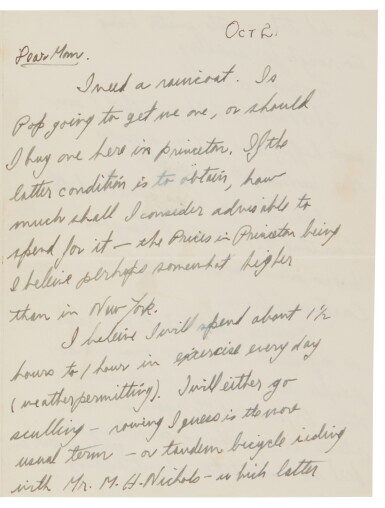 OCT 2.
Dear Mom.
I need a raincoat. Is
Pop going to get me one, or should
I buy one here in princeton. If the
latter condition is to obtain, how
much shall I consider advisable to
spend for it — the Prices in Princeton being
I beleive perhaps somewhat higher
than in New York.
I beleive I will spend about 1/2
hours to 1 hour in exercise every day
(weather permitting). I will either go
sculling — rowing I guess is the more
usual term — or tandem bicycle riding
with Mr. M. H. Nichols — which latter